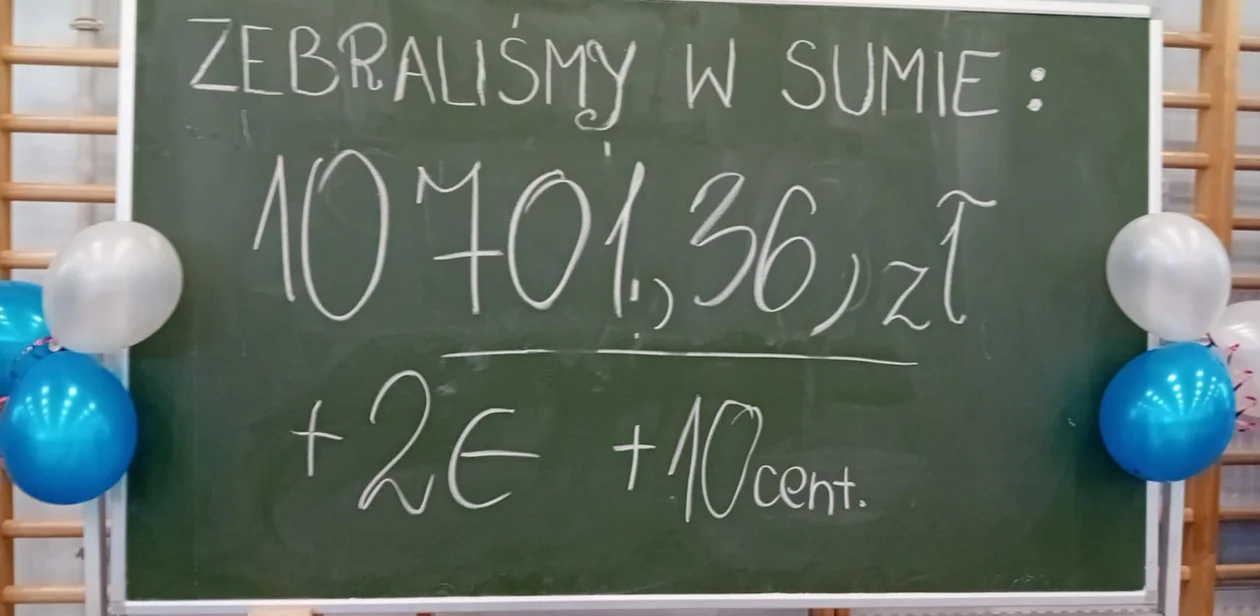 ZEBRALIŚMY W SUMIE:
10 701,36, zł
+2€ +10 cent.